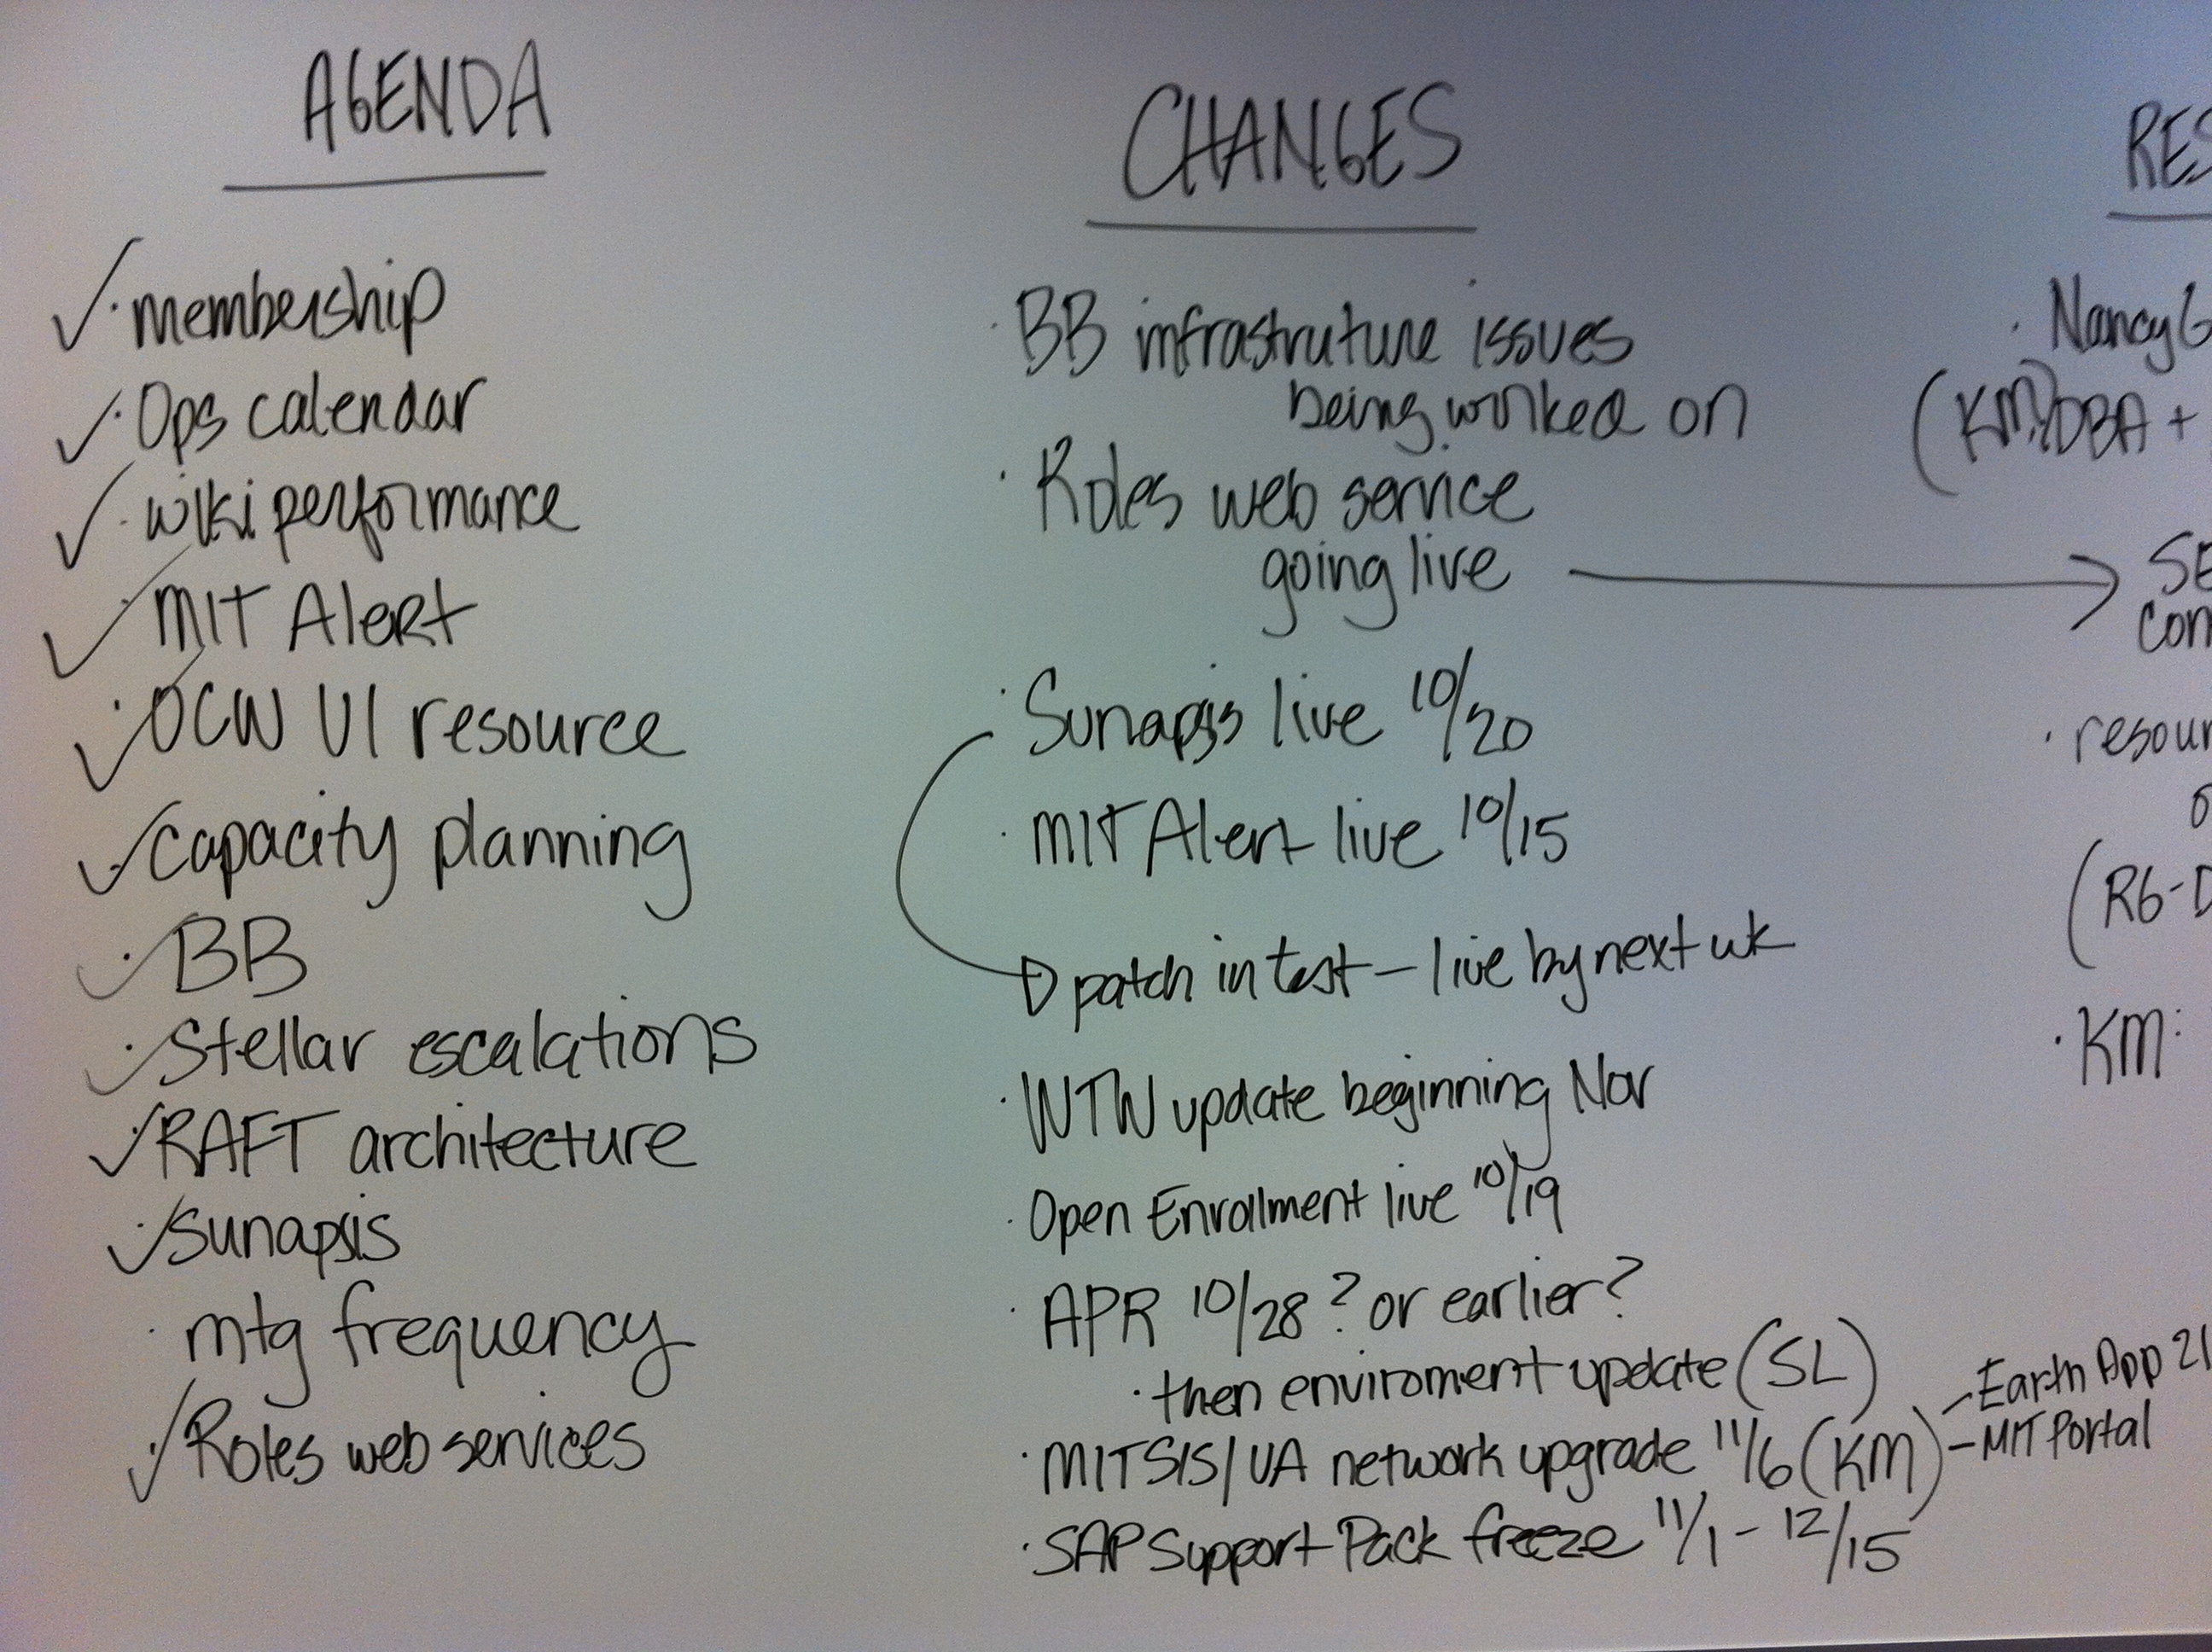 AGENDA
✓ · membership
✓ · Ops calendar
✓ · wiki performance
✓ MIT Alert
✓ · OCW UI resource
✓ · Capacity planning
✓ · BB
✓ · Stellar escalations
✓ · RAFT architecture
✓ · Sunapsis
· mtg frequency
✓ · Roles web services
CHANGES
· BB infrastruture issues
being worked on
· Roles web service
going live →
· Sunapsis live 10/20
· MIT Alert live 10/15
patch in test – live by next wk
· WTW update beginning Nov
· Open Enrollment live 10/19
· APR 10/28? or earlier?
· then enviroment update (SL)
· MITSIS/UA network upgrade 11/6 (KM)
– Earth App 21
– MIT Portal
· SAP Support Pack freeze 11/1 - 12/15
RES
· Nancy G
(KM) DBA +
SE
Con
· resour
o
(RG-D
· KM: